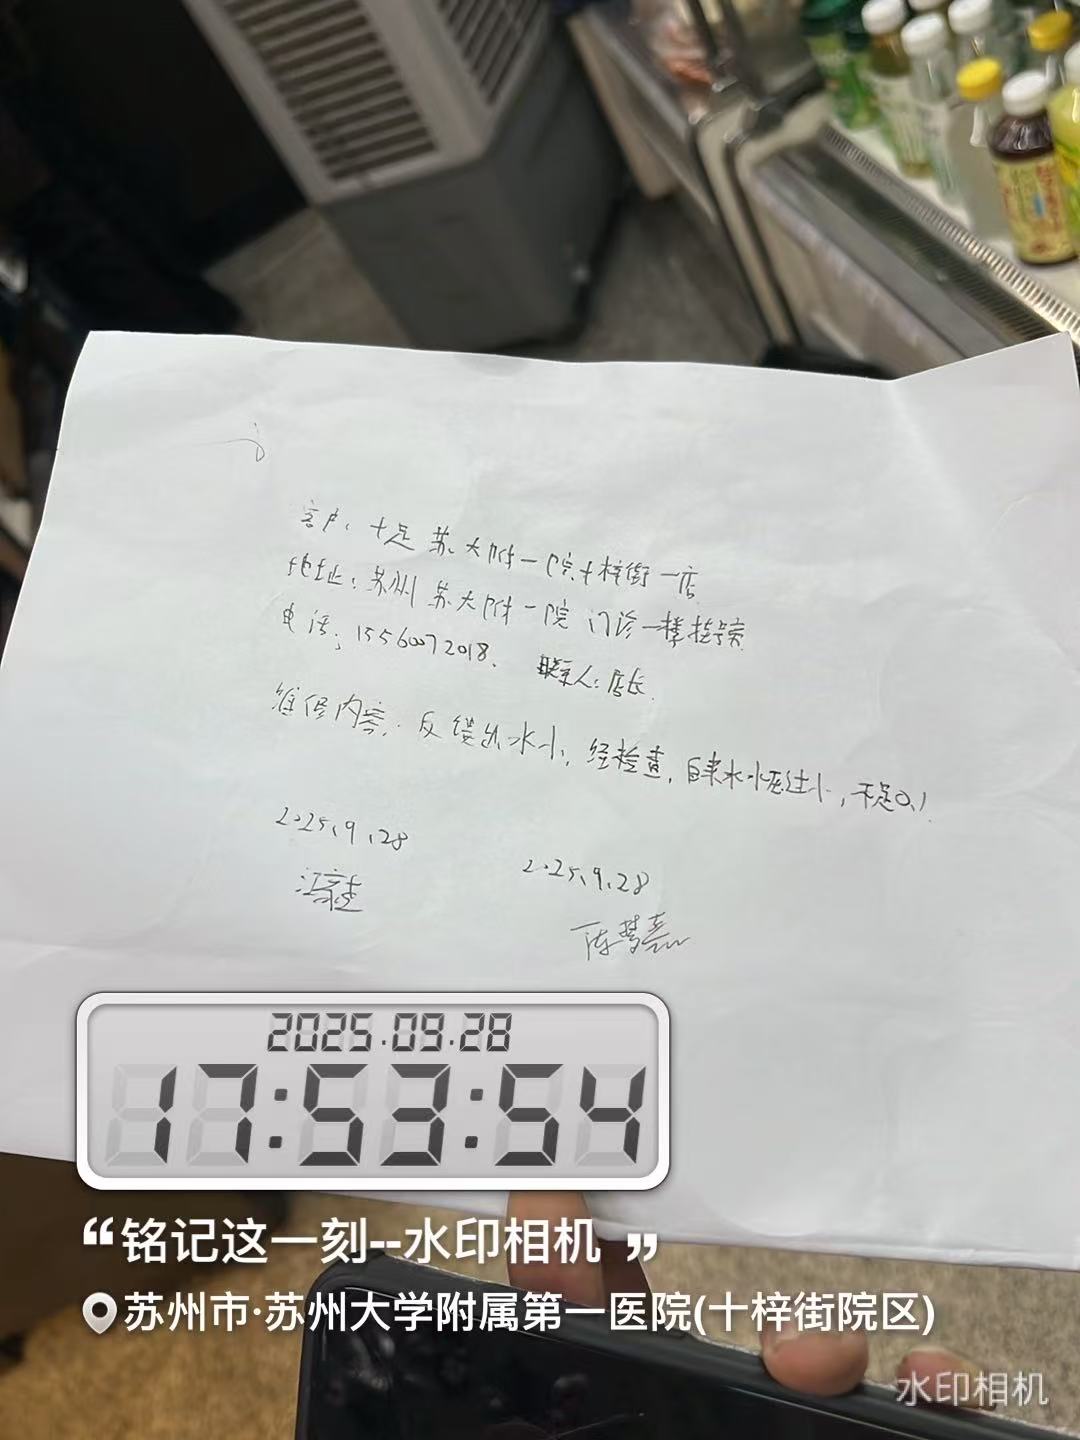 客户：十足 苏大附一院十梓街一店
地址：苏州 苏大附一院 门诊一楼挂号旁
电话：15560072018. 联系人：店长.
维保内容：反馈出水小，经检查，自来水水压过小，不足0.1.
2025.9.28
2025.9.28
陈梦嘉
2025.09.28
17:53:54
“铭记这一刻--水印相机 ”
苏州市·苏州大学附属第一医院(十梓街院区)
水印相机